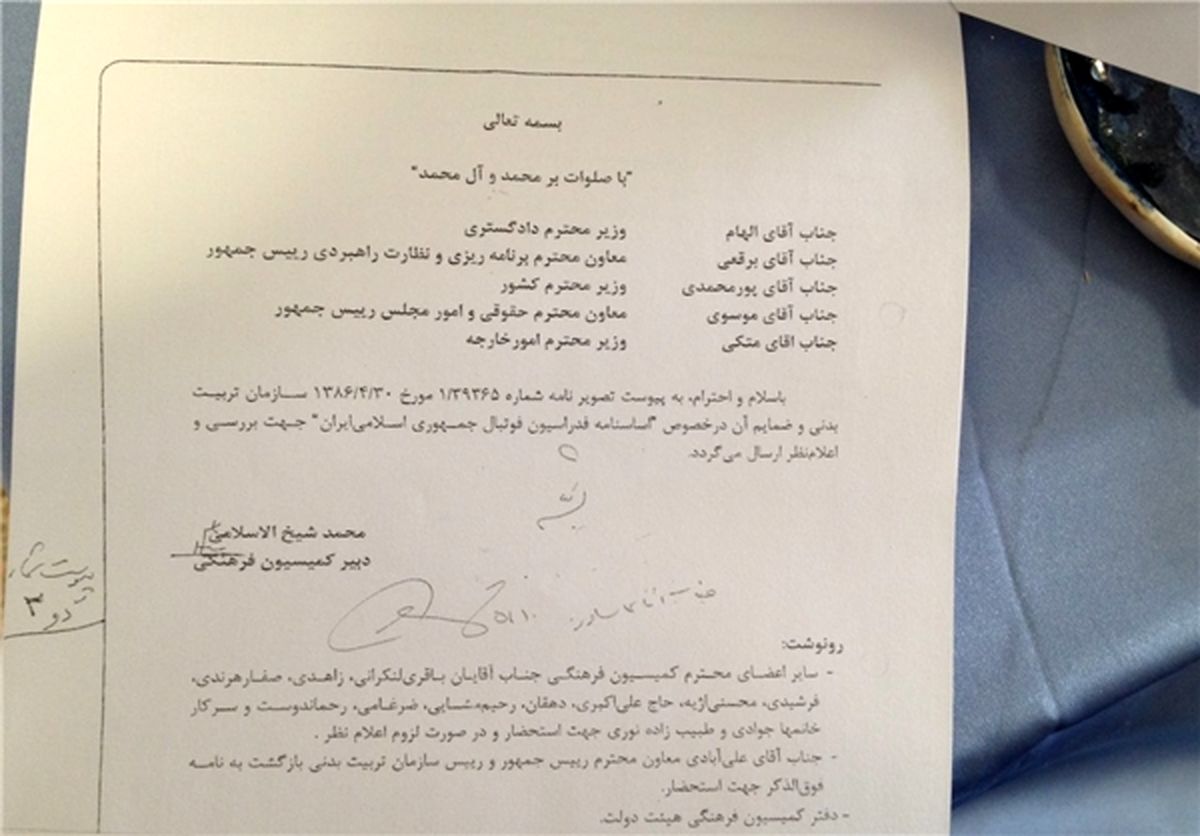 بسمه تعالی
"با صلوات بر محمد و آل محمد"
جناب آقای الهام وزیر محترم دادگستری
جناب آقای برقعی معاون محترم برنامه ریزی و نظارت راهبردی رییس جمهور
جناب آقای پورمحمدی وزیر محترم کشور
جناب آقای موسوی معاون محترم حقوقی و امور مجلس رییس جمهور
جناب اقای متکی وزیر محترم امورخارجه
باسلام و احترام، به پیوست تصویر نامه شماره ۱/۳۹۳۶۵ مورخ ۱۳۸۶/۴/۳۰ سازمان تربیت
بدنی و ضمایم آن درخصوص "اساسنامه فدراسیون فوتبال جمهوری اسلامی‌ایران" جهت بررسی و
اعلام‌نظر ارسال می‌گردد.
محمد شیخ الاسلامی
دبیر کمیسیون فرهنگی
پیوست شماره
دو ۳
رونوشت:
- سایر اعضای محترم کمیسیون فرهنگی جناب آقایان باقری‌لنکرانی، زاهدی، صفارهرندی،
فرشیدی، محسنی‌اژیه، حاج علی‌اکبری، دهقان، رحیم‌مشایی، ضرغامی، رحماندوست و سرکار
خانمها جوادی و طبیب زاده نوری جهت استحضار و در صورت لزوم اعلام نظر .
- جناب آقای علی‌آبادی معاون محترم رییس جمهور و رییس سازمان تربیت بدنی بازگشت به نامه
فوق‌الذکر جهت استحضار.
- دفتر کمیسیون فرهنگی هیئت دولت.